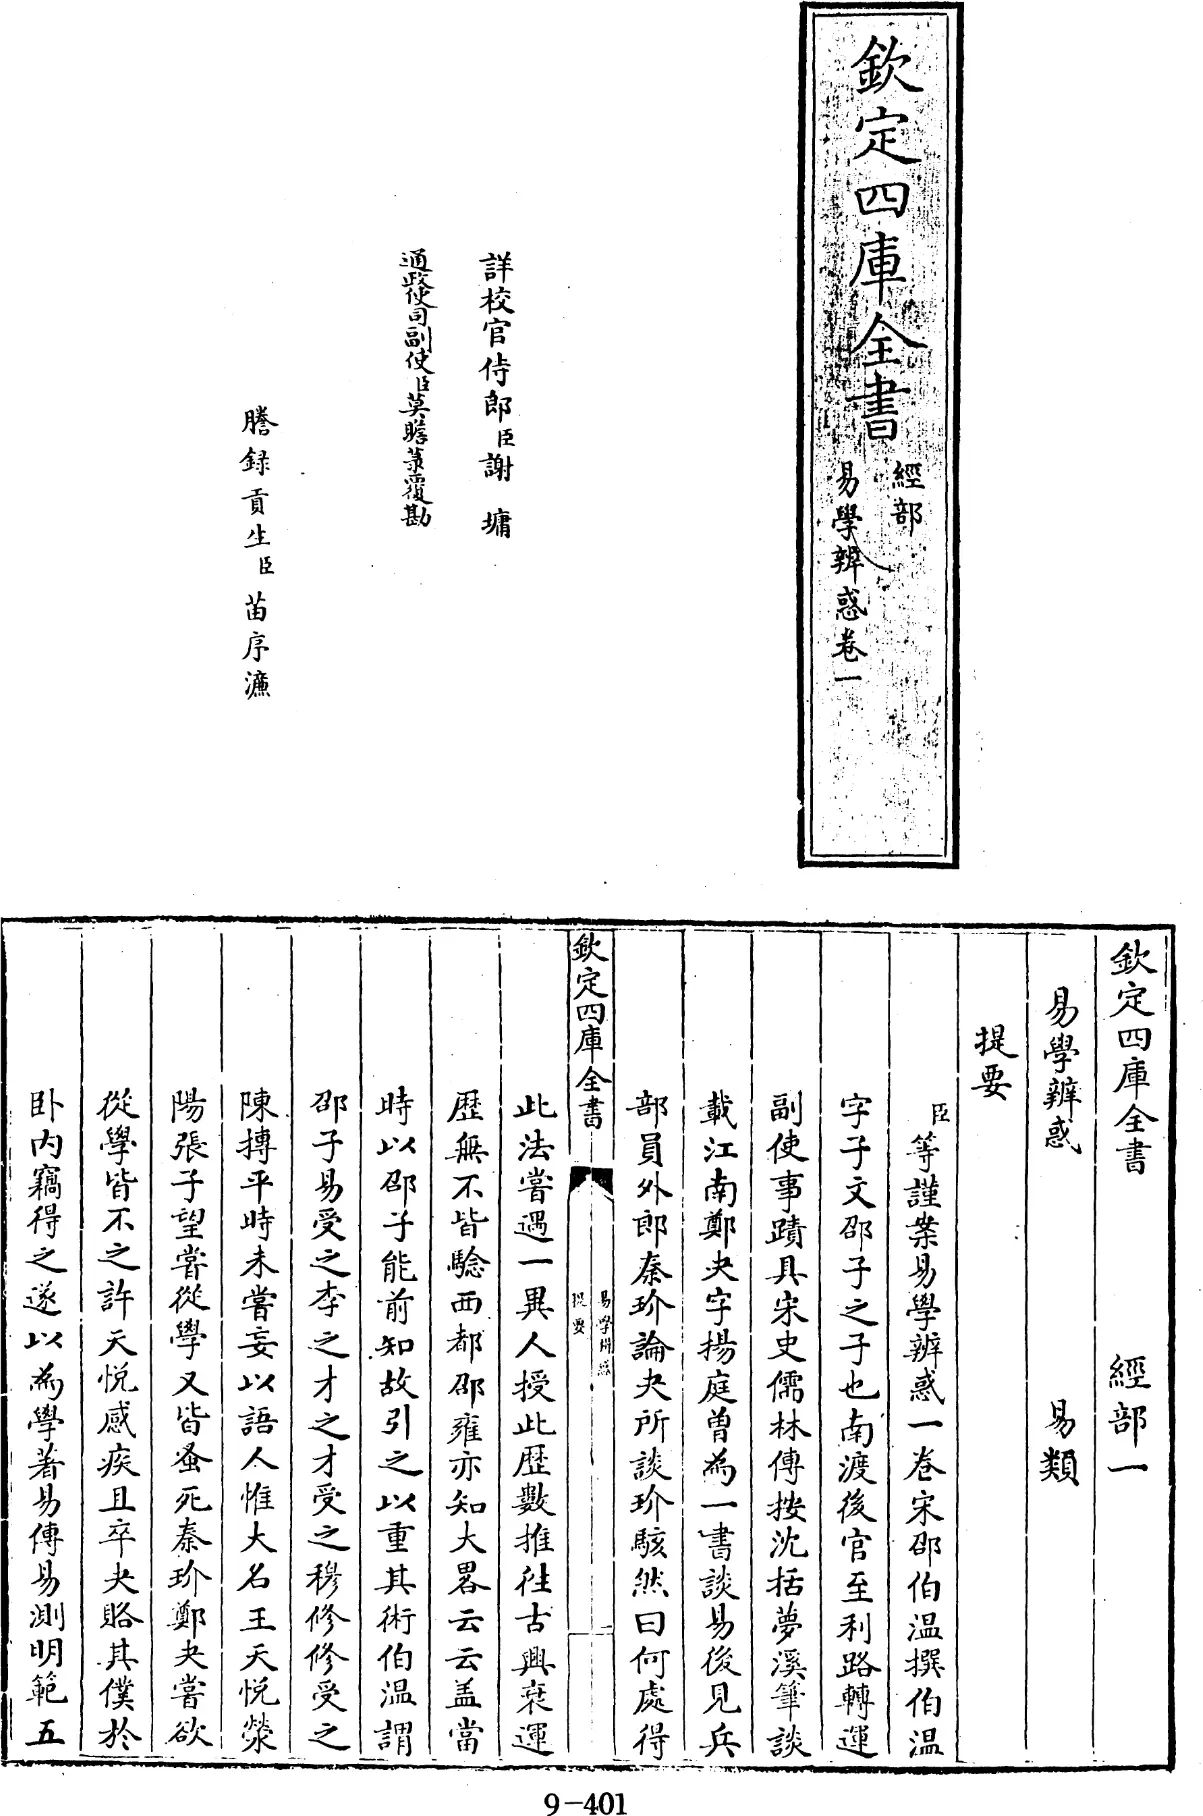 欽定四庫全書
經部
易學辨惑卷一
詳校官侍郎臣謝墉
通政使司副使臣莫瞻菉覆勘
謄錄貢生臣苗序濂
欽定四庫全書 經部一
易學辨惑 易類
提要
臣等謹案易學辨惑一卷宋邵伯溫撰伯溫
字子文邵子之子也南渡後官至利路轉運
副使事蹟具宋史儒林傳按沈括夢溪筆談
載江南鄭夬字揚庭曾為一書談易後見兵
部員外郎秦玠論夬所談玠駭然曰何處得
欽定四庫全書
易學辨惑
提要
一
此法嘗遇一異人授此歴數推往古興衰運
歴無不皆驗西都邵雍亦知大畧云云盖當
時以邵子能前知故引之以重其術伯溫謂
邵子易受之李之才之才受之穆修修受之
陳摶平時未嘗妄以語人惟大名王天悅滎
陽張子望嘗從學又皆蚤死秦玠鄭夬嘗欲
從學皆不之許天悅感疾且卒夬賂其僕於
卧内竊得之遂以為學著易傳易測明範五
9-401